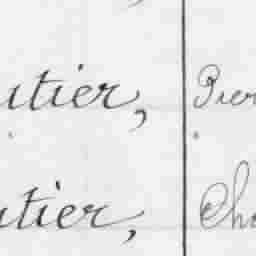 utier, Pier
utier, Cha